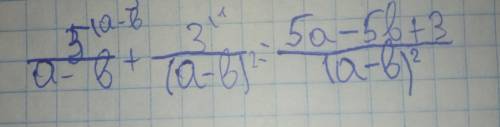 5^{\(a-b} / (a-b) + 3^{\1} / (a-b)^2 = (5a-5b+3) / (a-b)^2